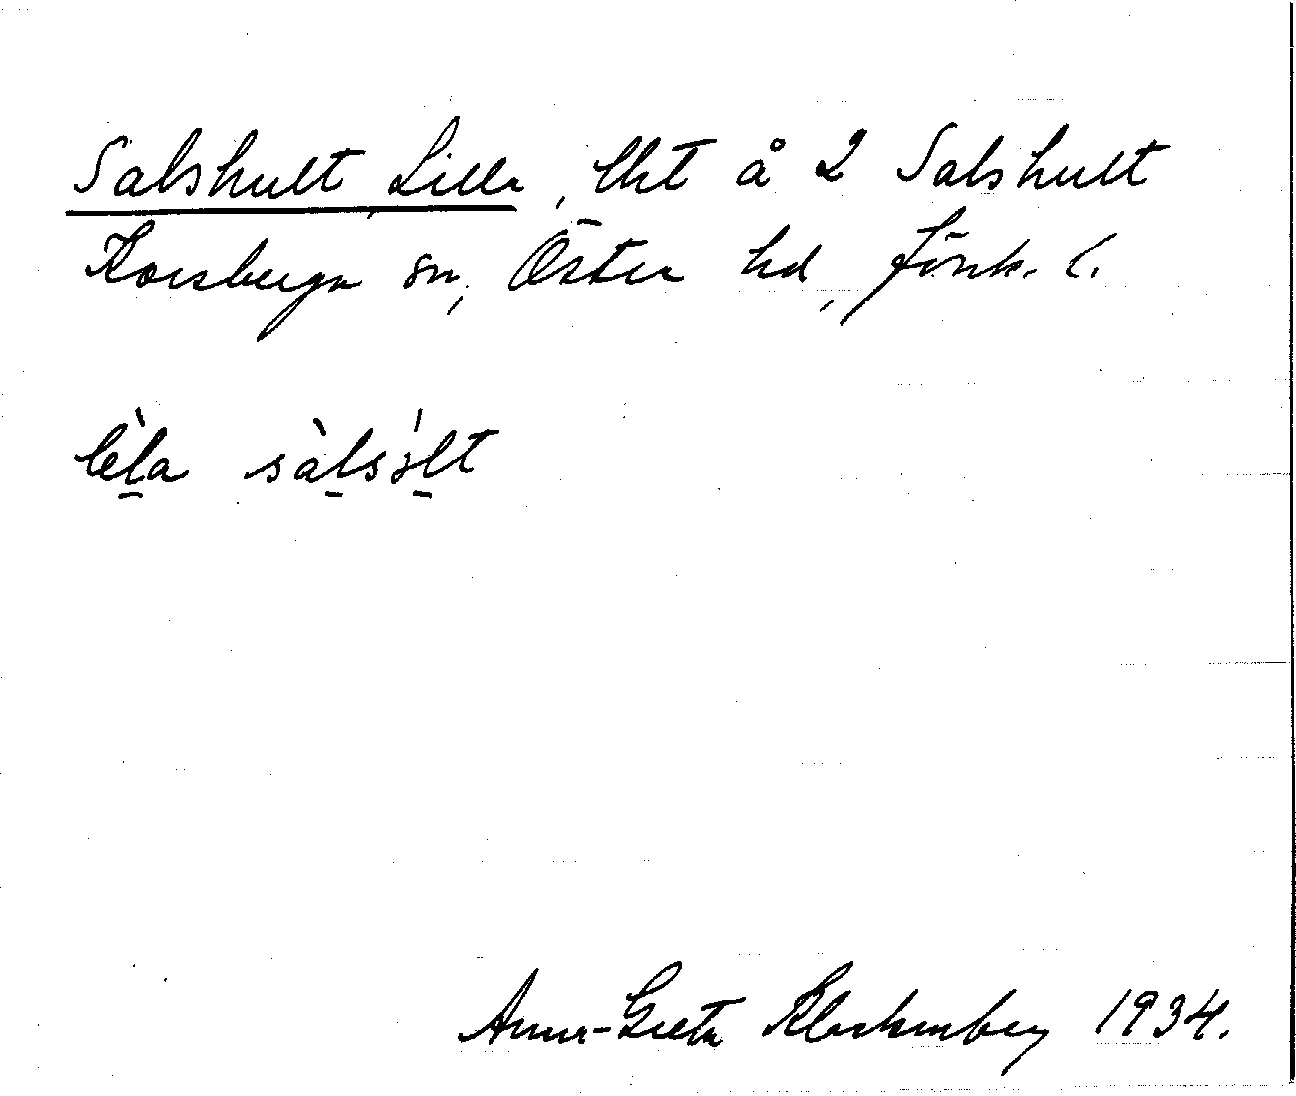 Salshult, Lilla, lht å 2 Salshult
Korsberga sn, Östra hd, Jönk. l.
lèl̠a sàl̠sól̠t
Anna-Greta Klockenberg 1934.